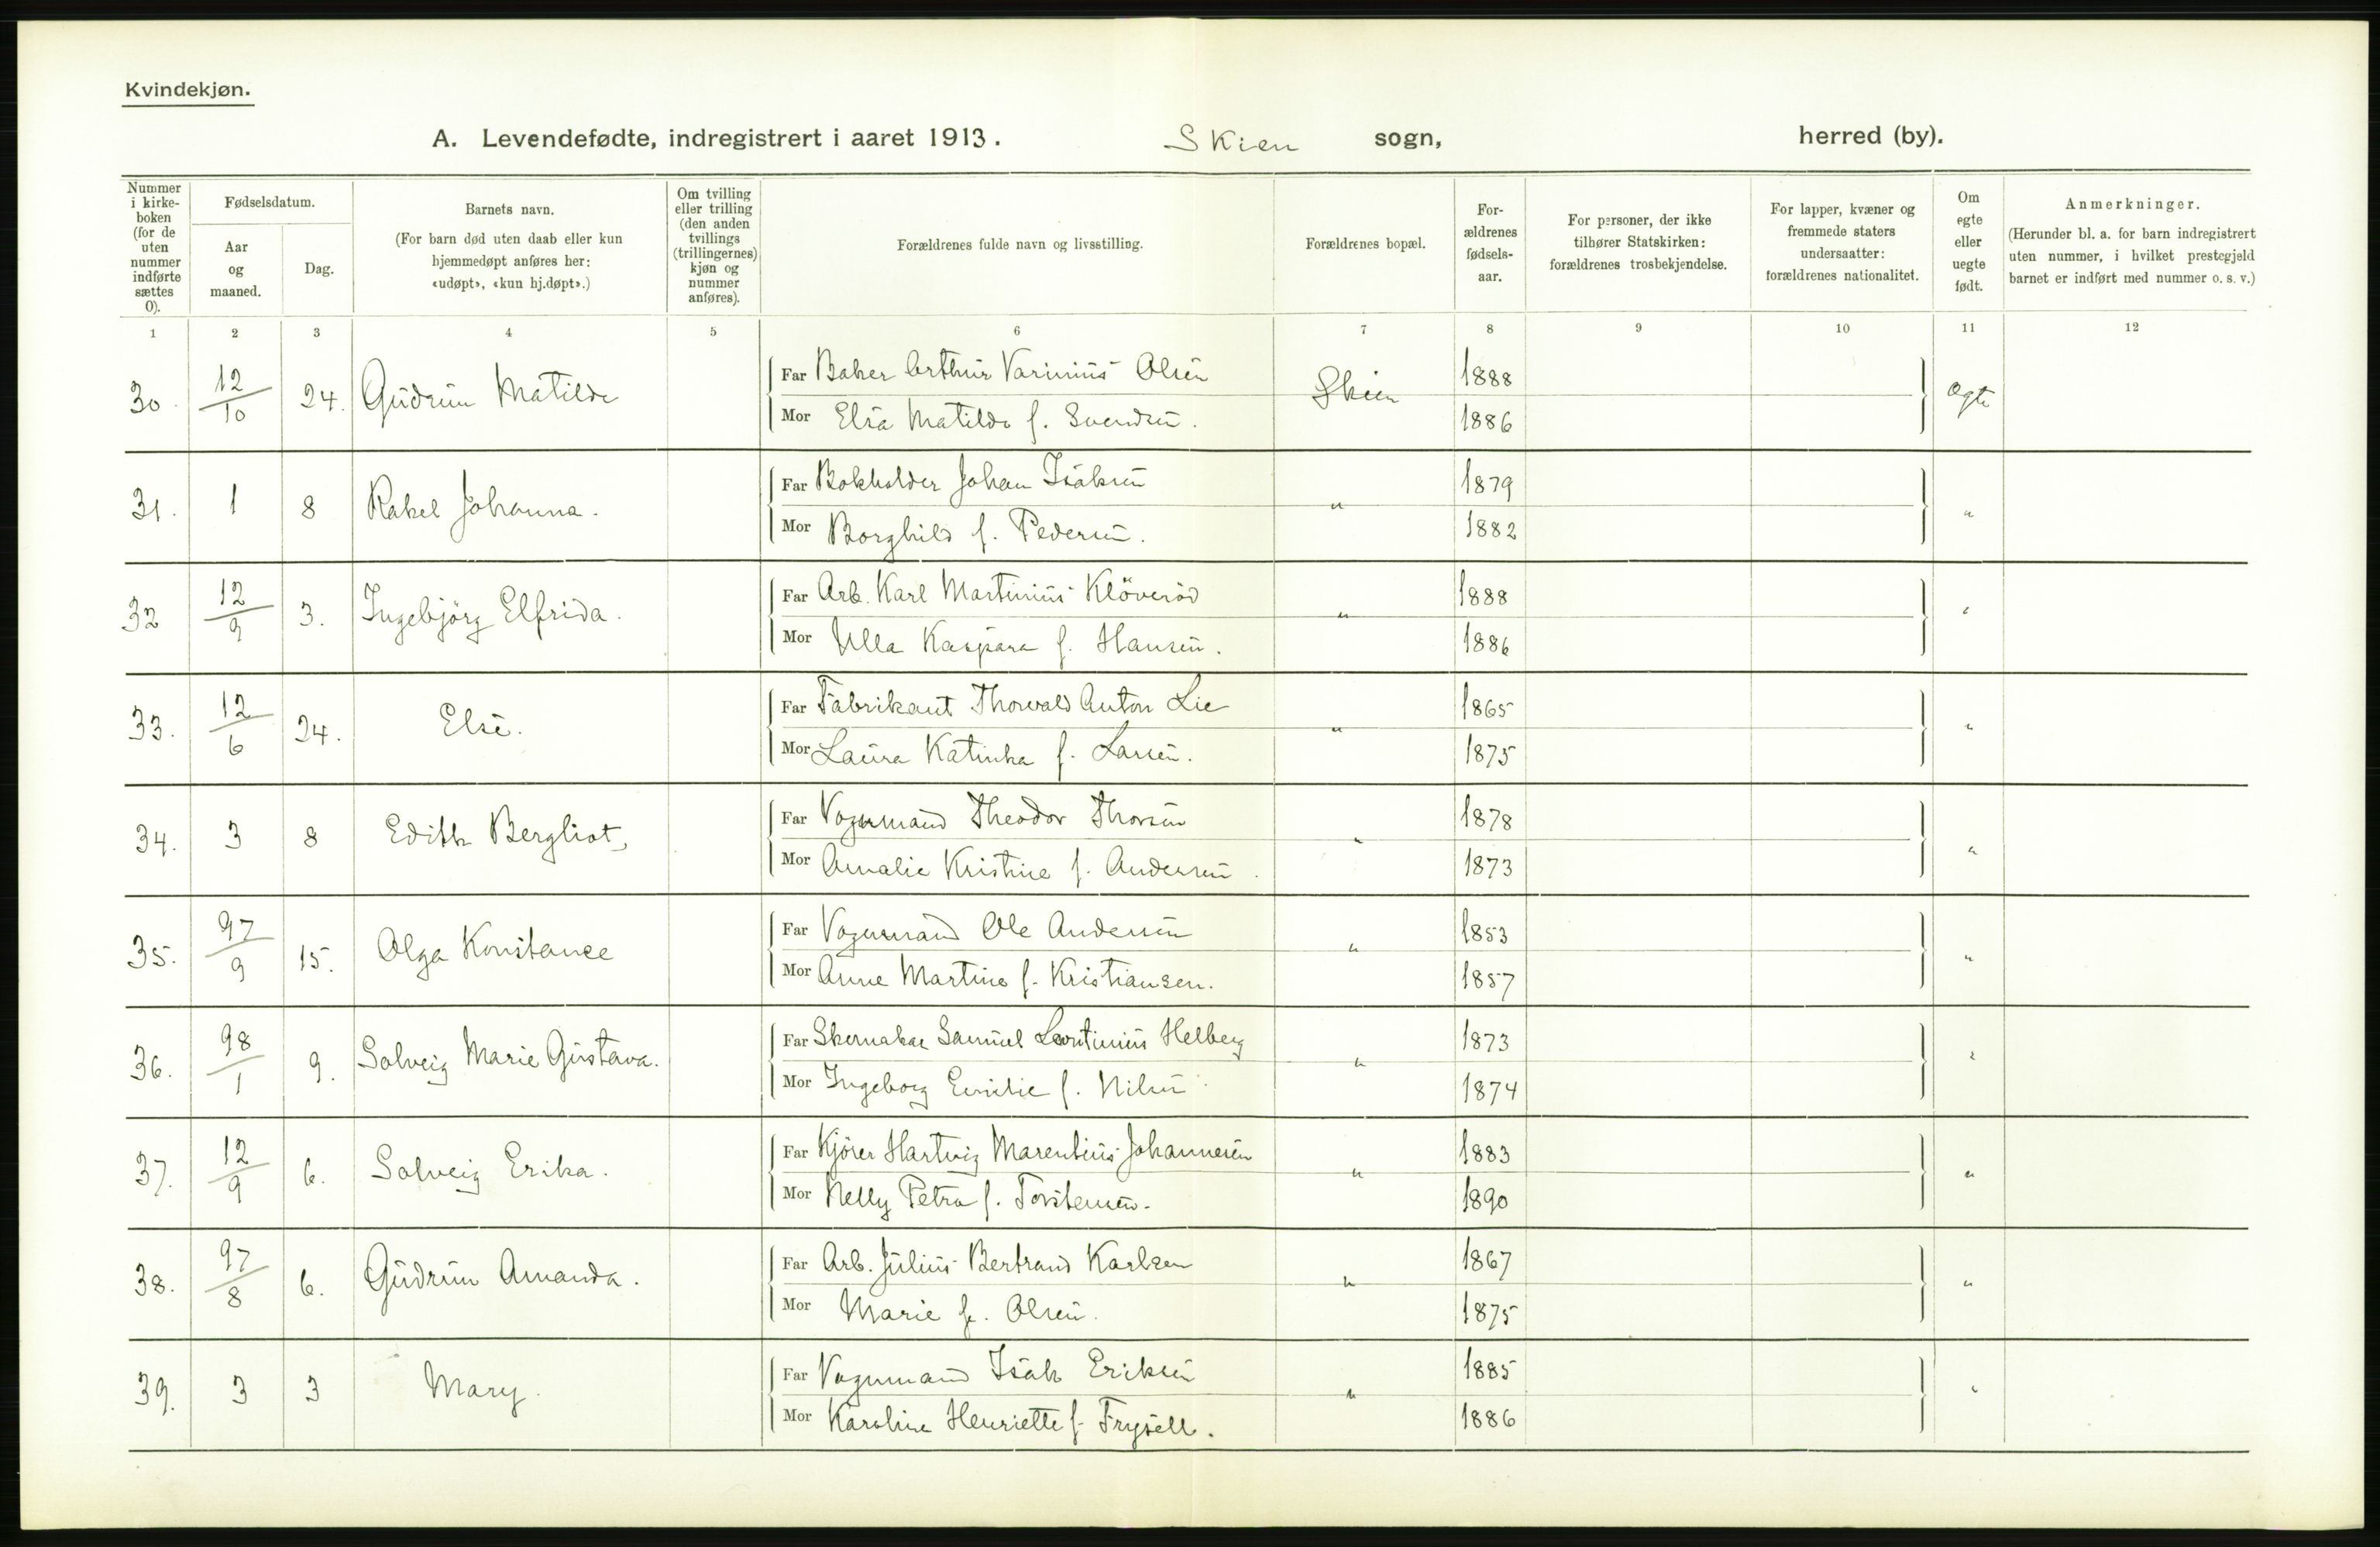 Kvindekjøn.
A. Levendefødte, indregistrert i aaret 1913. Skien sogn, herred (by).
Nummer i kirkeboken (for de uten nummer indførte sættes 0).
Fødselsdatum.
Aar og maaned.
Dag.
Barnets navn.
(For barn død uten daab eller kun hjemmedøpt anføres her: «udøpt», «kun hj.døpt».)
Om tvilling eller trilling (den anden tvillings (trillingernes) kjøn og nummer anføres).
Forældrenes fulde navn og livsstilling.
Forældrenes bopæl.
Forældrenes fødselsaar.
For personer, der ikke tilhører Statskirken: forældrenes trosbekjendelse.
For lapper, kvæner og fremmede staters undersaatter: forældrenes nationalitet.
Om egte eller uegte født.
Anmerkninger.
(Herunder bl. a. for barn indregistrert uten nummer, i hvilket prestegjeld barnet er indført med nummer o. s. v.)
1 2 3 4 5 6 7 8 9 10 11 12
30. 12/10 24. Gudrun Matilde Far Baker Arthur Olsen Skien 1888 Ægte
Mor Elsa Matilde f. Svendsen. 1886
31. 1 8 Rakel Johanna. Far Bokholder Johan Isaksen " 1879 "
Mor Borghild f. Pedersen. 1882
32 12/9 3. Ingebjörg Elfrida. Far Arb. Karl Martinius Klöverød " 1888 "
Mor Ulla Kaspara f. Hansen. 1886
33. 12/6 24. Else. Far Fabrikant Thorvald Anton Lie " 1865 "
Mor Laura Katinka f. Larsen. 1875
34. 3 8 Edith Bergliot, Far Vognmand Theodor Thorsen " 1878 "
Mor Amalie Kristine f. Andersen. 1873
35. 97/9 15. Olga Konstance Far Vognmand Ole Andersen " 1853 "
Mor Anne Martine f. Kristiansen. 1857
36. 98/1 9. Solveig Marie Gustava. Far Skomaker Samuel Leontinius Helberg " 1873 "
Mor Ingeborg Emilie f. Nilsen. 1874
37. 12/9 6. Solveig Erika. Far Kjörer Hartvig Marentius Johannesen " 1883 "
Mor Nelly Petra f. Torstensen. 1890
38. 97/8 6. Gudrun Amanda. Far Arb. Julius Bertrand Karlsen " 1867 "
Mor Marie f. Olsen. 1875
39. 3 3 Mary. Far Vognmand Isak Eriksen " 1885 "
Mor Karoline Henriette f. Frysell. 1886